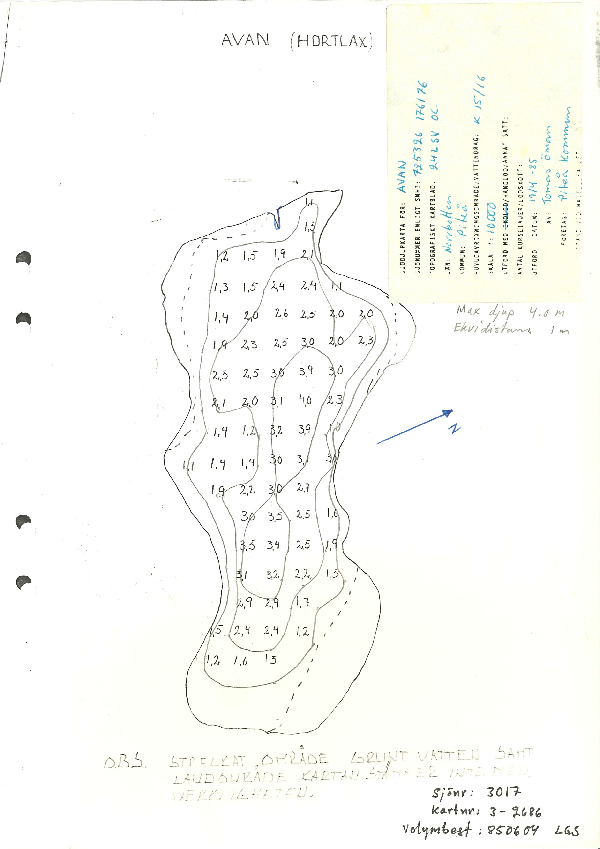 AVAN (HORTLAX)
SJÖDJUPKARTA FÖR: AVAN
SJÖNUMMER ENLIGT SMHI: 725326 176176
TOPOGRAFISKT KARTBLAD: 24L SV OC
LÄN: Norrbotten
KOMMUN: Piteå
HUVUDAVRINNINGSOMRÅDE/VATTENDRAG: K 15/16
SKALA 1: 10000
UTFÖRD MED EKOLOD/HANDLOD/ANNAT SÄTT:
ANTAL KURSLINJER/LODSKOTT:
UTFÖRD DATUM: 19/4-85
AV: Tomas Öman
FÖRETAG: Piteå Kommun
Max djup 4.0 m
Ekvidistans 1 m
1,1
1,3
1,2 1,5 1,9 2,1
1,3 1,5 2,4 2,4 1,1
1,4 2,0 2,6 2,5 2,0 2,0
1,9 2,3 2,5 3,0 2,0 2,3
2,3 2,5 3,0 3,9 3,0
2,1 2,0 3,1 4,0 2,3
1,4 1,2 3,2 3,9
1,1 1,4 1,4 3,0
1,9 2,2 3,0 2,7
3,0 3,5 2,5 1,6
3,5 3,4 2,5 1,9
3,1 3,2 2,2 1,5
2,9 2,9 1,7
1,5 2,4 2,4 1,2
1,2 1,6 1,5
N
OBS. STRECKAT OMRÅDE GRUNT VATTEN SAMT
LANDOMRÅDE KARTAN STÄMMER INTE MED
VERKLIGHETEN.
Sjönr: 3017
Kartnr: 3-2686
Volymbest: 850604 LGS